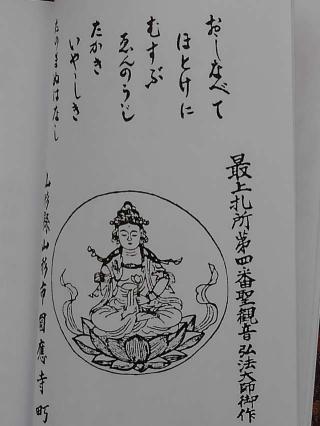 おしなべて
ほとけに
むすぶ
ゑんのうじ
たかき
いやしき
たのまぬはなし
最上札所第四番聖觀音弘法大師御作
山形縣山形市圓應寺町